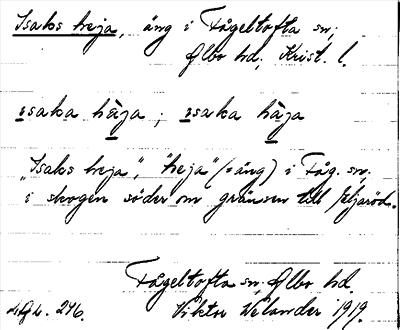 Isaks heja, äng i Fågeltofta sn;
Albo hd; Krist. l.
ısaka hàja; ısaka hàja
„Isaks heja", "heja" (=äng) i Fåg. sn;
i skogen söder om gränsen till Eljaröd.
Fågeltofta sn, Albo hd.
Viktor Welander 1919.